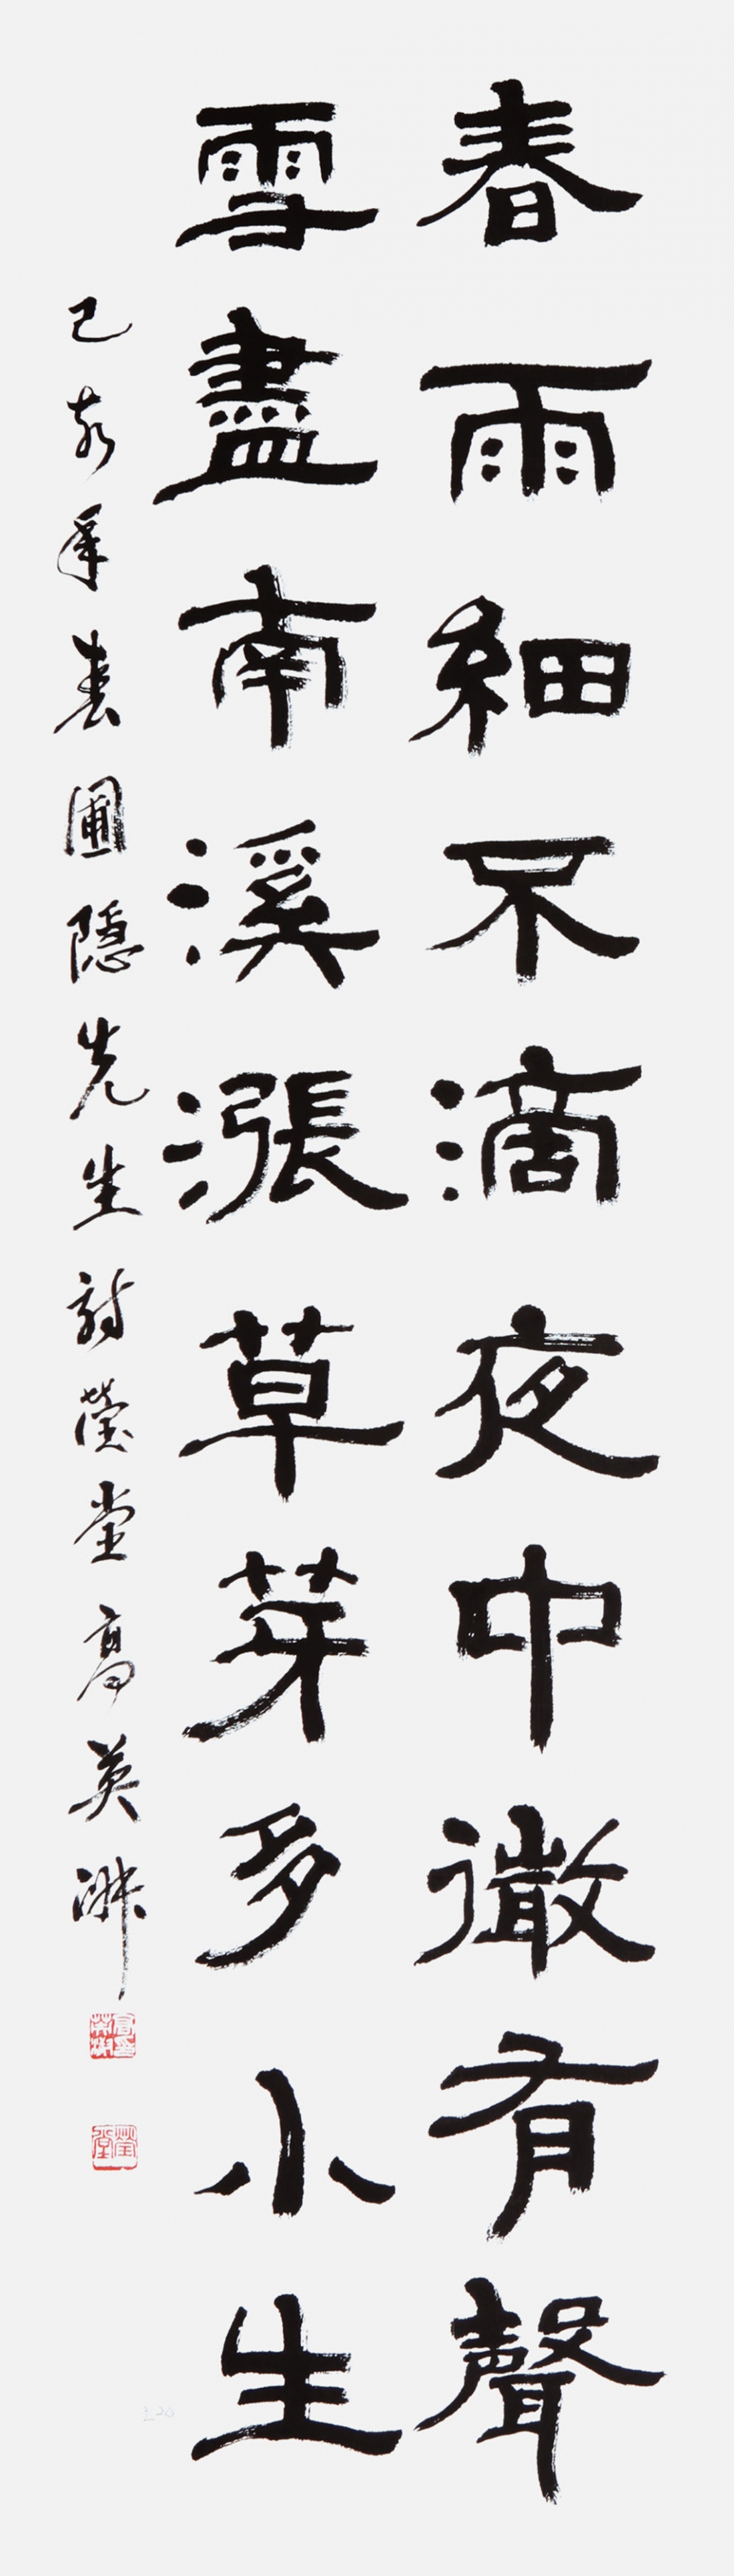 春雨細不滴夜中微有聲
雪盡南溪漲草芽多小生
己亥年春圃隱先生詩瑩堂高英淑
瑩堂